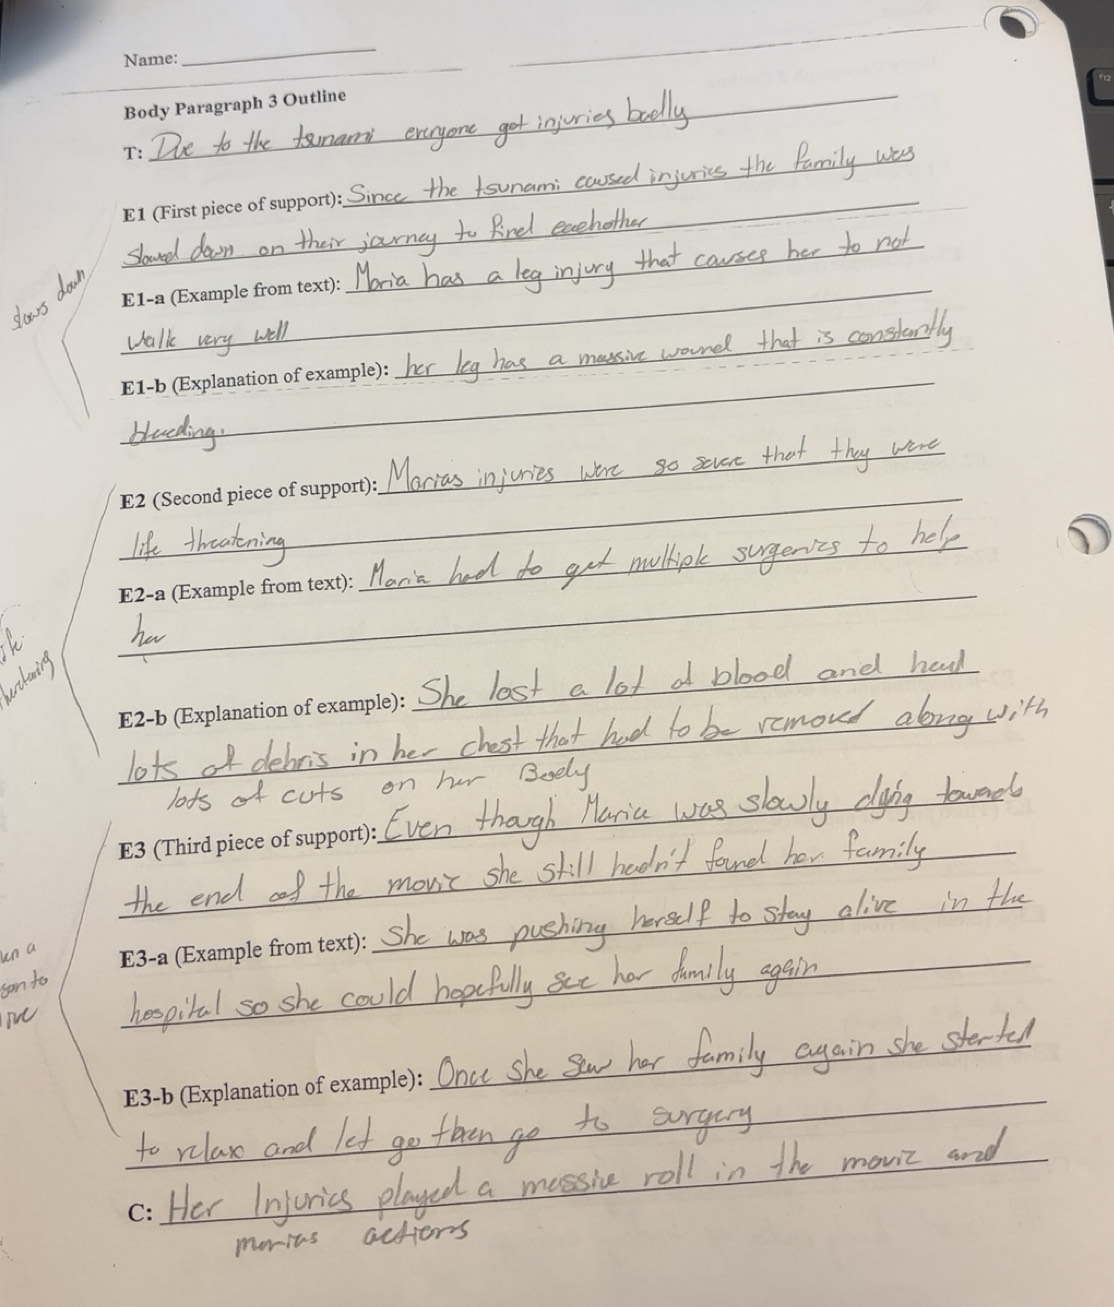 Name:
Body Paragraph 3 Outline
T: Due to the tsunami everyone got injuries badly
E1 (First piece of support): Since the tsunami caused injuries the family was
slowed down on their journey to find eachother
slows down
E1-a (Example from text): Maria has a leg injury that causes her to not
walk very well
E1-b (Explanation of example): her leg has a massive wound that is constantly
bleeding.
E2 (Second piece of support): Marias injuries were so severe that they were
life threatening
E2-a (Example from text): Maria had to get multiple surgeries to help
her
E2-b (Explanation of example): She lost a lot of blood and had
lots of debris in her chest that had to be removed along with
lots of cuts on her Body
E3 (Third piece of support): Even though Maria was slowly dying towards
the end of the movie she still hadn't found her family
E3-a (Example from text): She was pushing herself to stay alive in the
hospital so she could hopefully see her family again
E3-b (Explanation of example): Once she saw her family again she started
to relax and let go then go to surgery
C: Her Injuries played a massive roll in the movie and
marias actions
F12